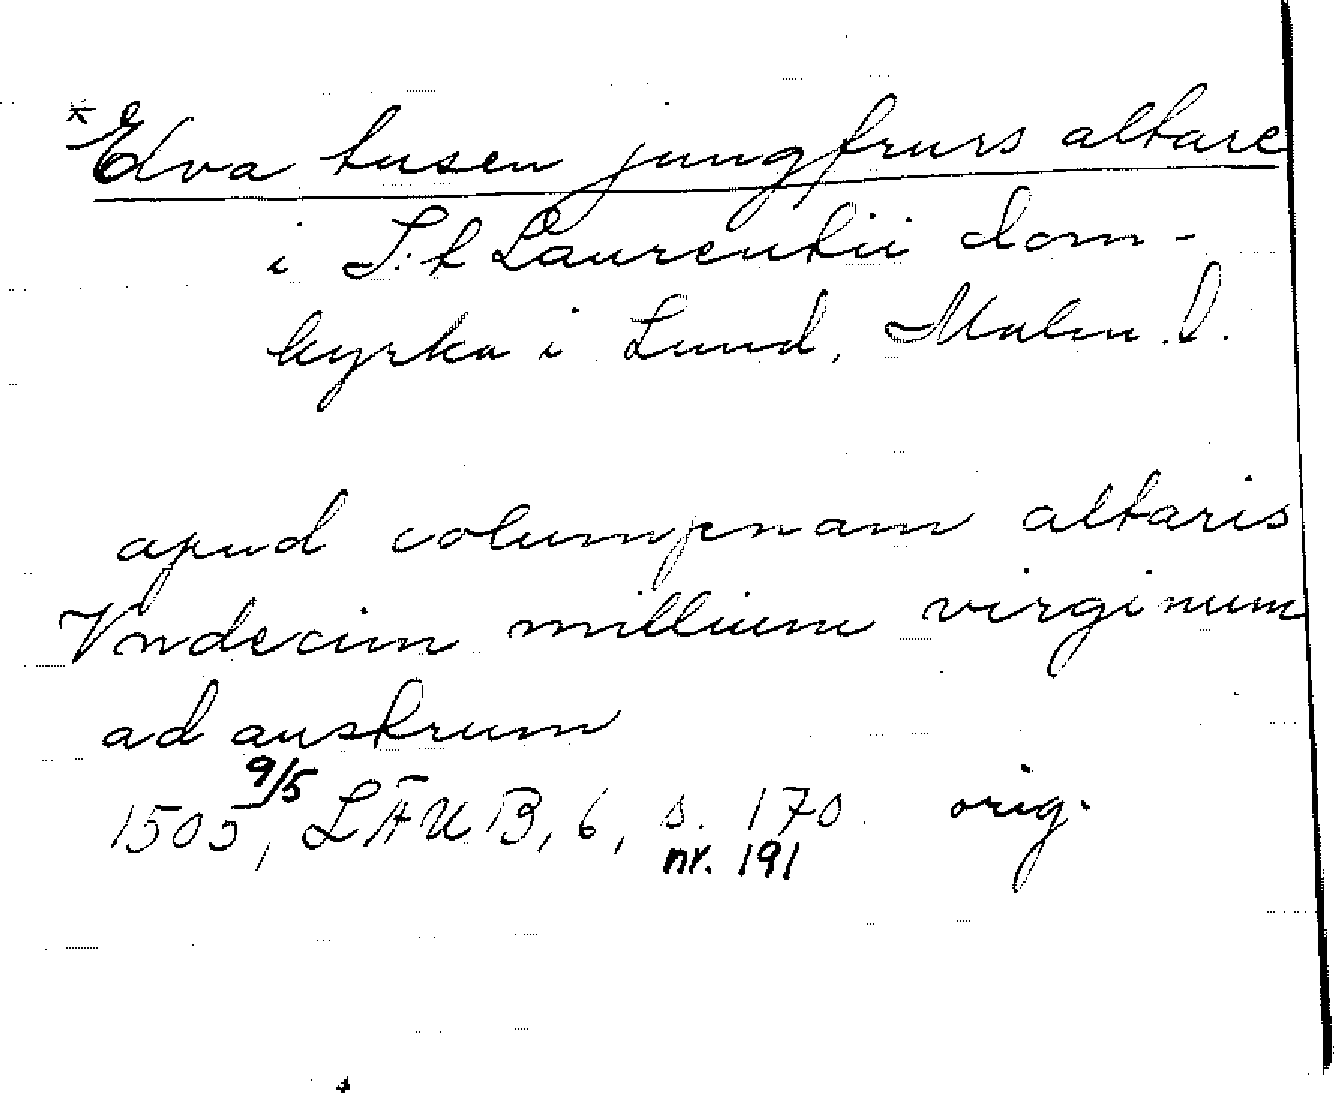 *Elva tusen jungfrurs altare
i S:t Laurentii dom-
kyrka i Lund, Malm. l.
apud columpnam altaris
Vndecim millium virginum
ad austrum
1505 9/5, LÄUB, 6, s. 170 orig.
nr. 191